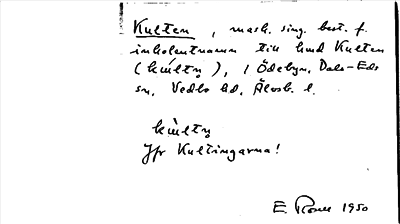 Kulten, mask. sing. best. f.
inbolentnamn till hmd Kulten
(kúltn̥), i Ödebyn, Dals-Eds
sn, Vedbo hd, Älvsb. l.
kùltn̥
Jfr Kultingarna!
E. 1950